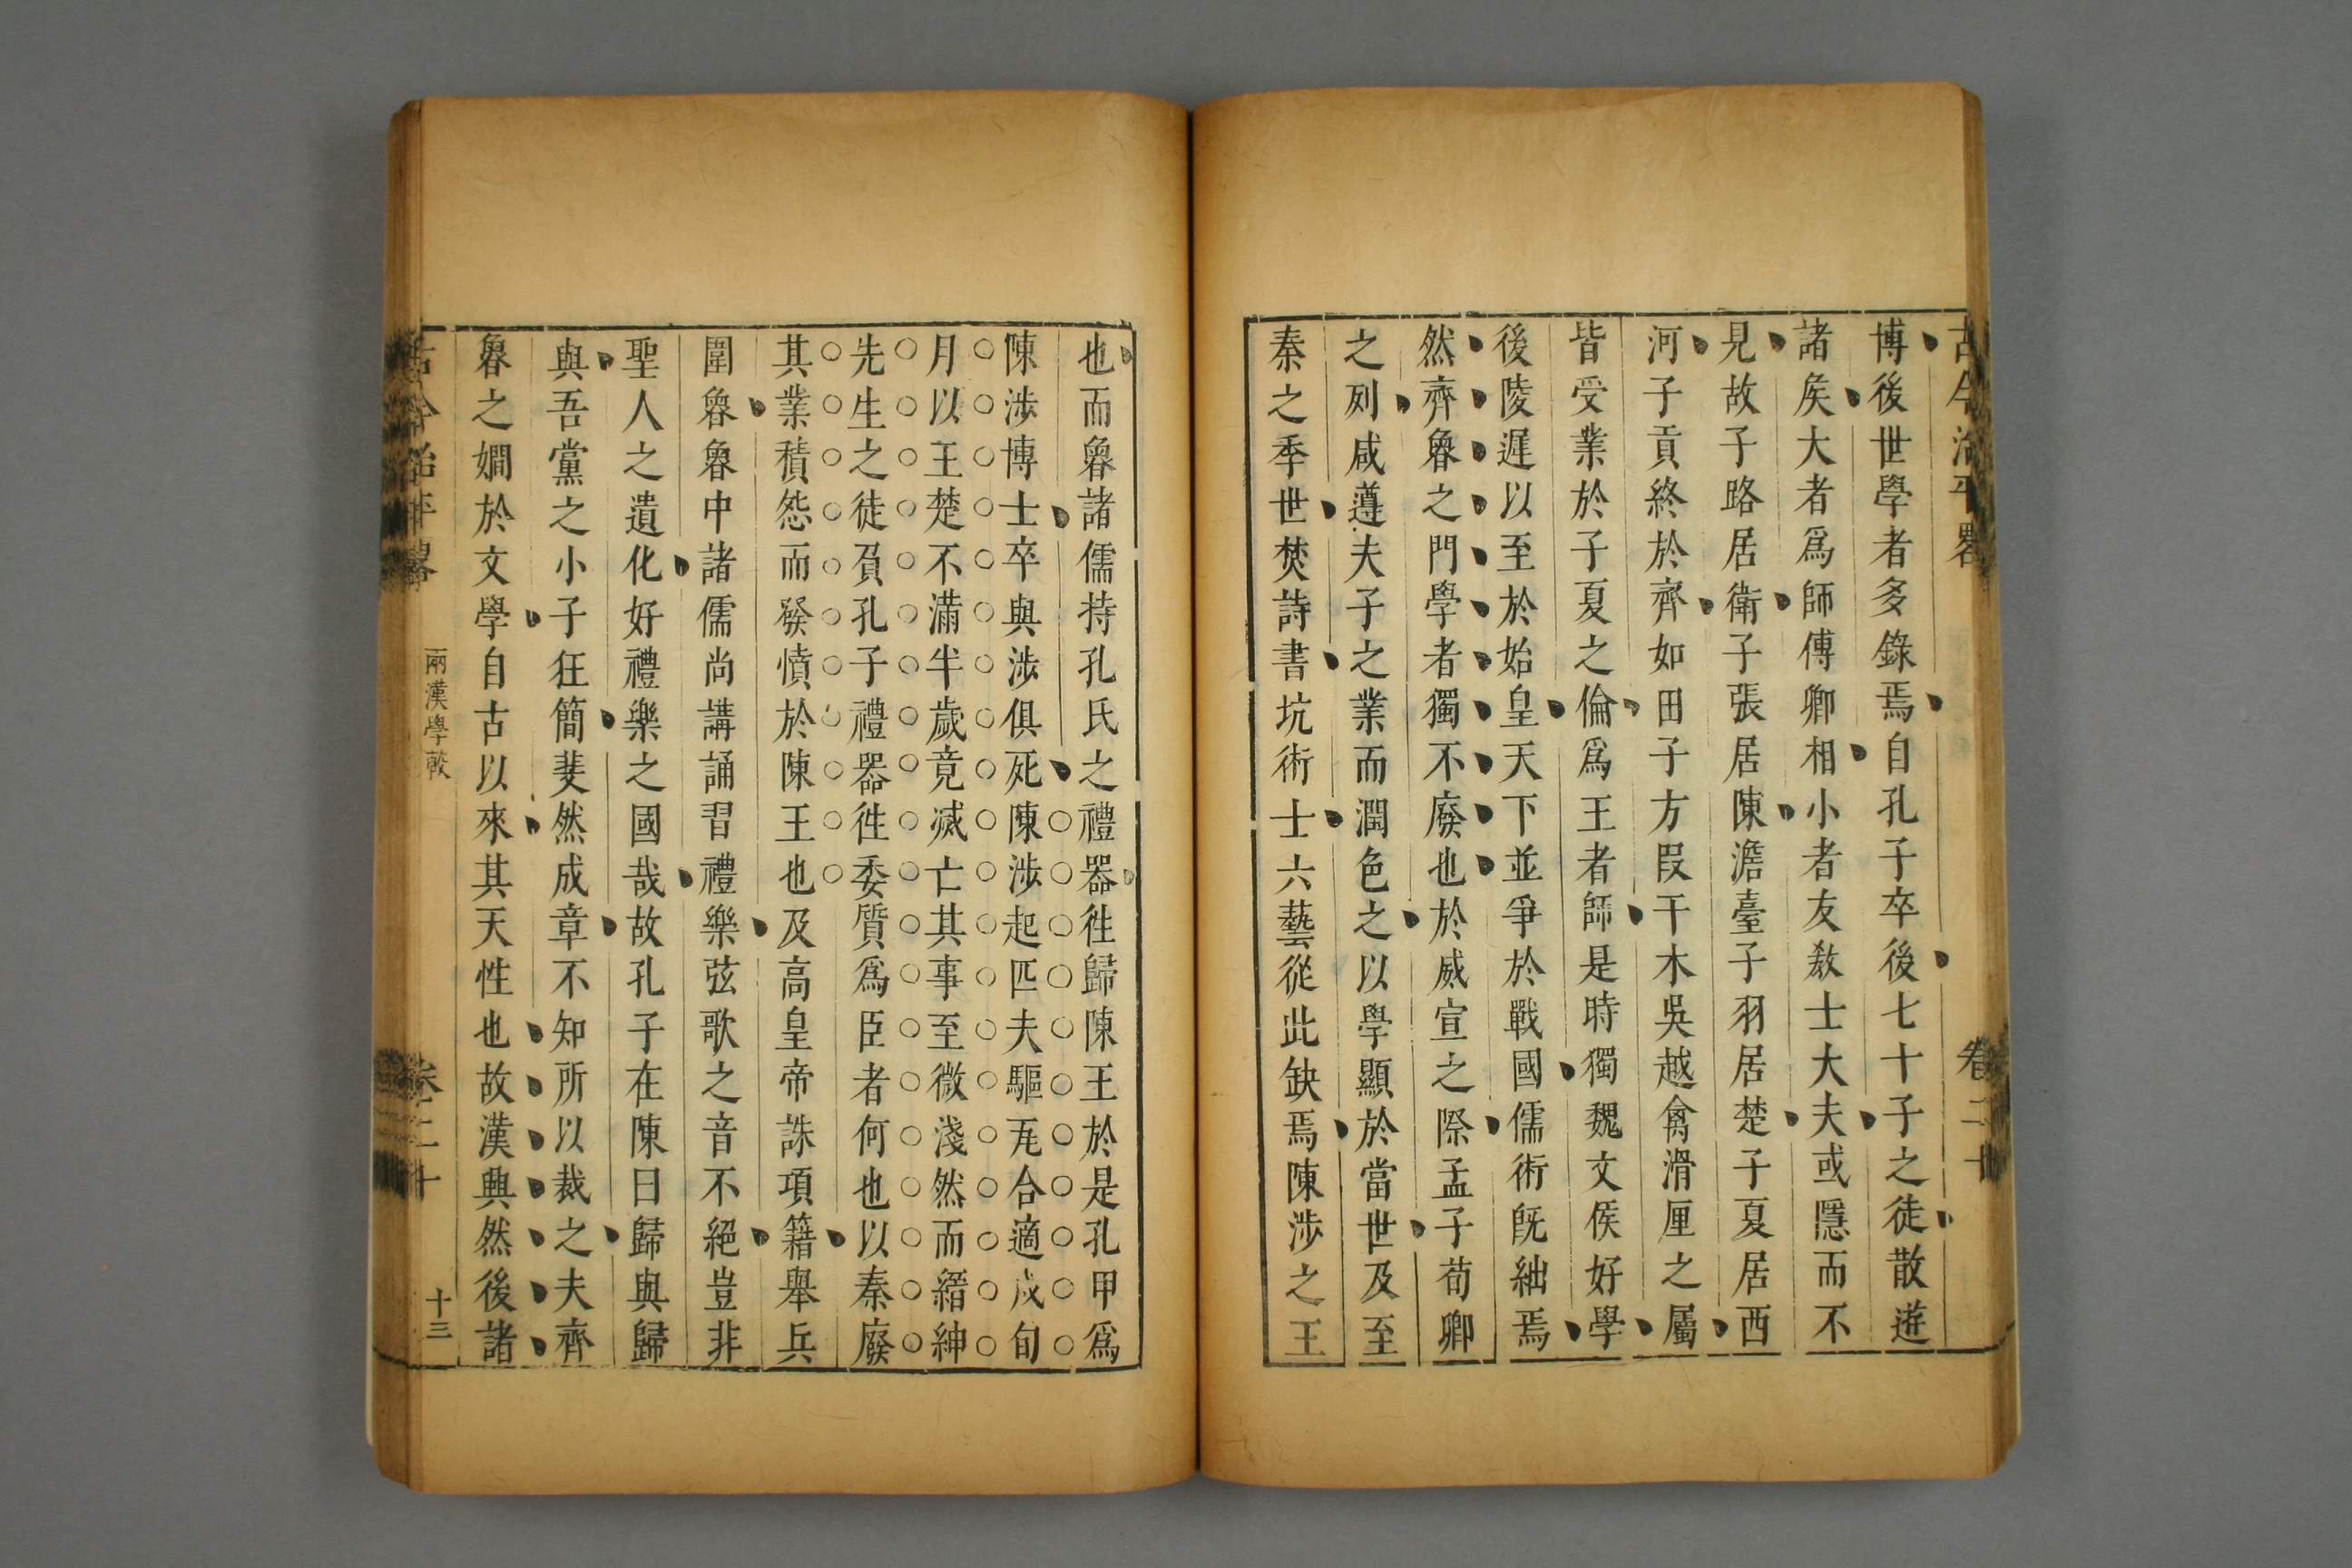 古今治平畧
卷二十
博後世學者多錄焉自孔子卒後七十子之徒散遊
諸矦大者爲師傅卿相小者友敎士大夫或隱而不
見故子路居衛子張居陳澹臺子羽居楚子夏居西
河子貢終於齊如田子方段干木吳越禽滑厘之屬
皆受業於子夏之倫爲王者師是時獨魏文侯好學
後陵遲以至於始皇天下並爭於戰國儒術既絀焉
然齊魯之門學者獨不廢也於威宣之際孟子荀卿
之列咸遵夫子之業而潤色之以學顯於當世及至
秦之季世焚詩書坑術士六藝從此缺焉陳涉之王
也而魯諸儒持孔氏之禮器徃歸陳王於是孔甲爲
陳涉博士卒與涉俱死陳涉起匹夫驅瓦合適戍旬
月以王楚不滿半歲竟滅亡其事至微淺然而縉紳
先生之徒負孔子禮器徃委質爲臣者何也以秦廢
其業積怨而發憤於陳王也及高皇帝誅項籍舉兵
圍魯魯中諸儒尚講誦習禮樂弦歌之音不絕豈非
聖人之遺化好禮樂之國哉故孔子在陳曰歸與歸
與吾黨之小子狂簡斐然成章不知所以裁之夫齊
魯之嫺於文學自古以來其天性也故漢興然後諸
古今治平畧
兩漢學數
卷二十
十三